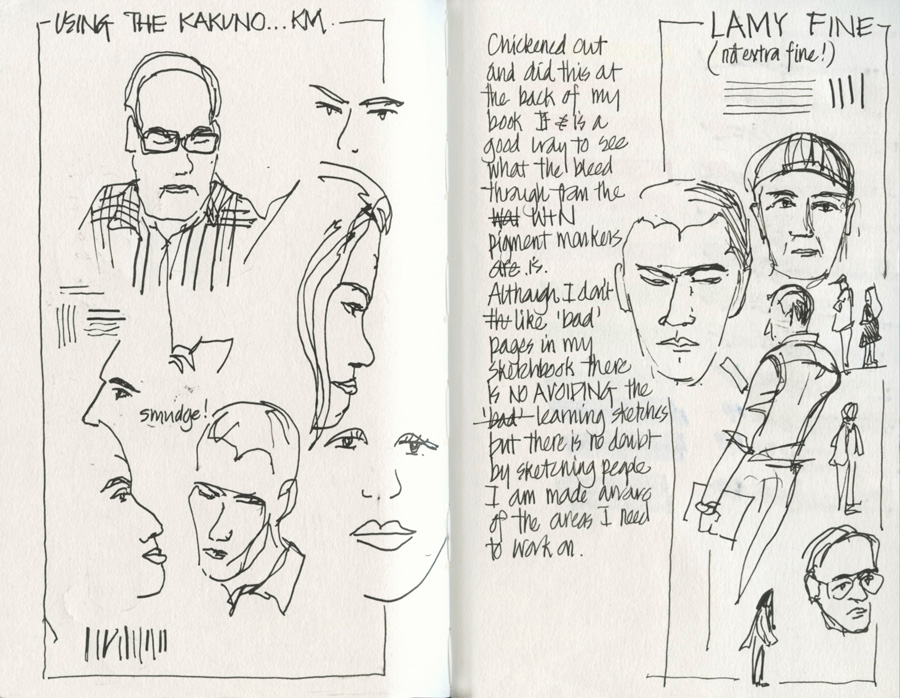 USING THE KAKUNO...KM.
smudge!
Chickened out
and did this at
the back of my
book It is a
good way to see
what the bleed
through from the
W+N
pigment markers
is.
Although I don't
like 'bad'
pages in my
sketchbook there
IS NO AVOIDING the
'bad' learning sketches
but there is no doubt
by sketching people
I am made aware
of the areas I need
to work on.
LAMY FINE
(not extra fine!)